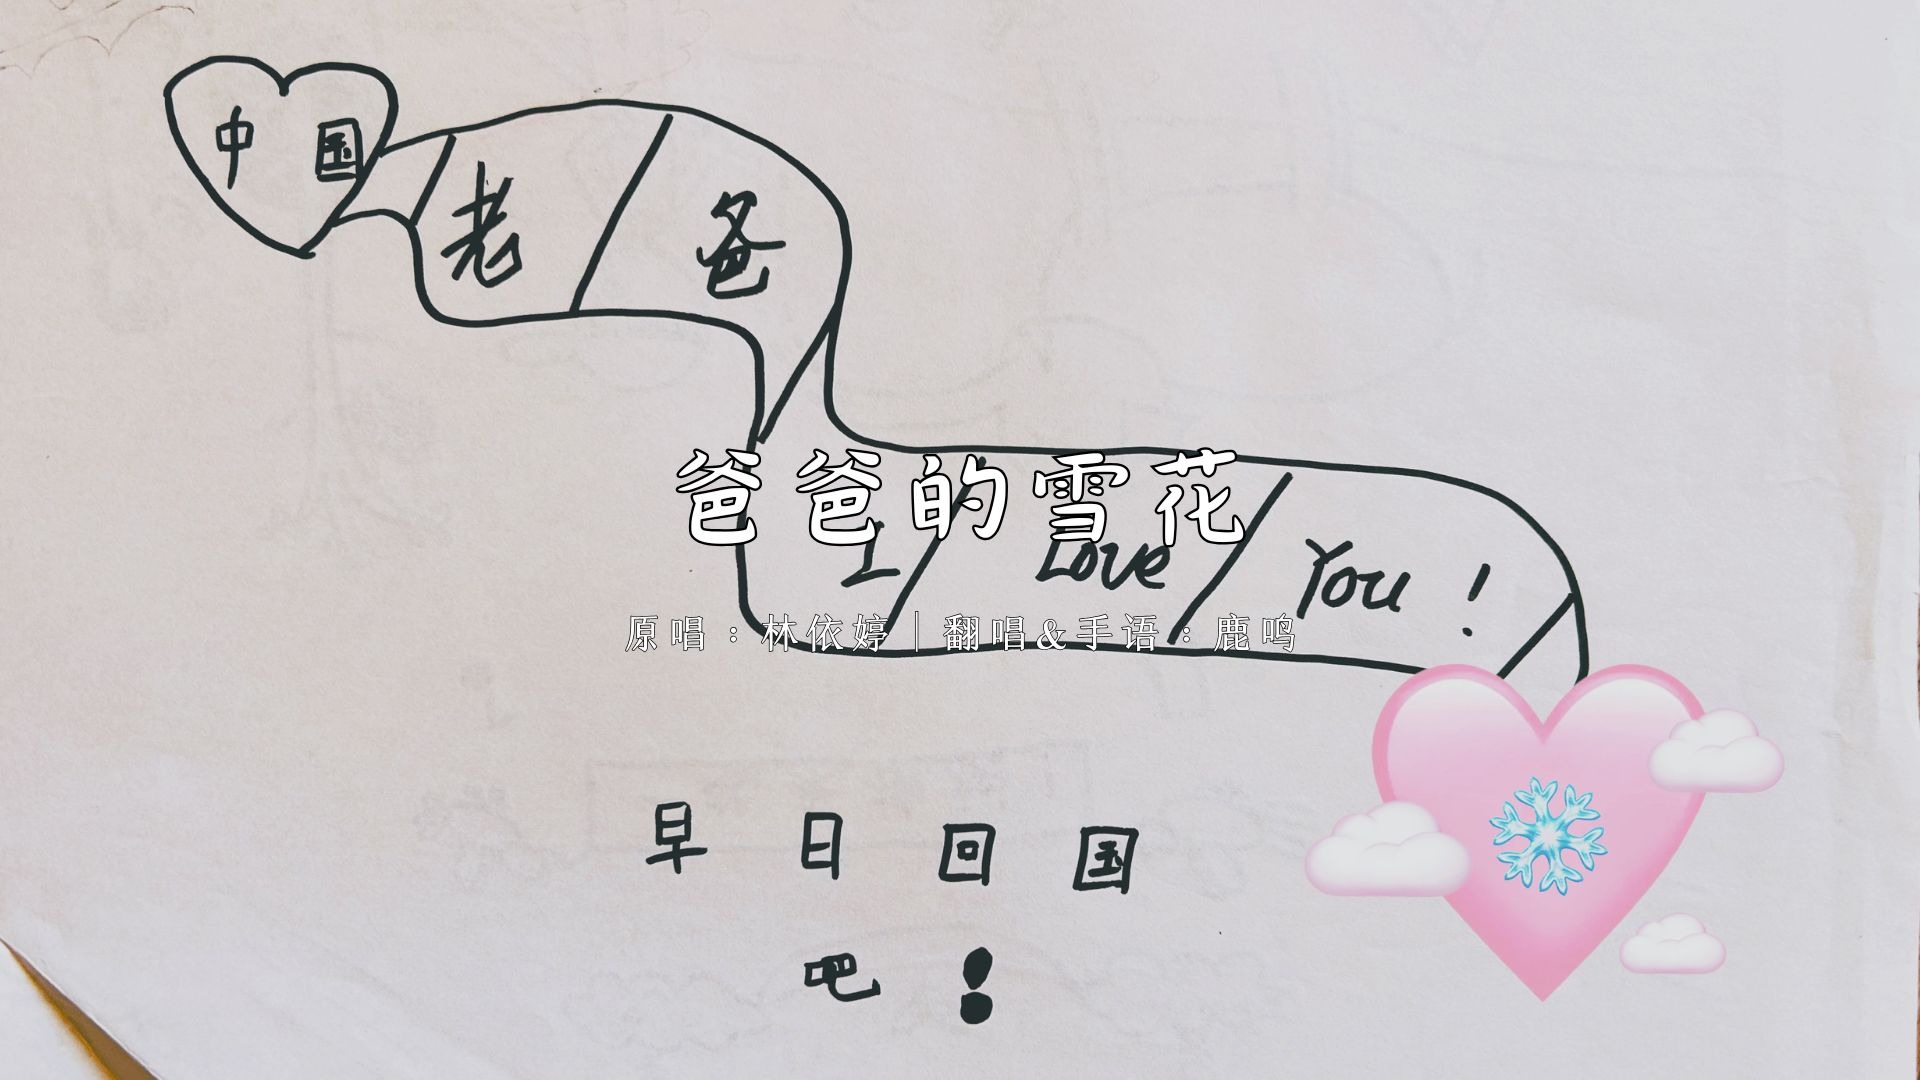 中国
老爸
爸爸的雪花
I Love You!
原唱：林依婷｜翻唱&手语：鹿鸣
早日回国
吧！